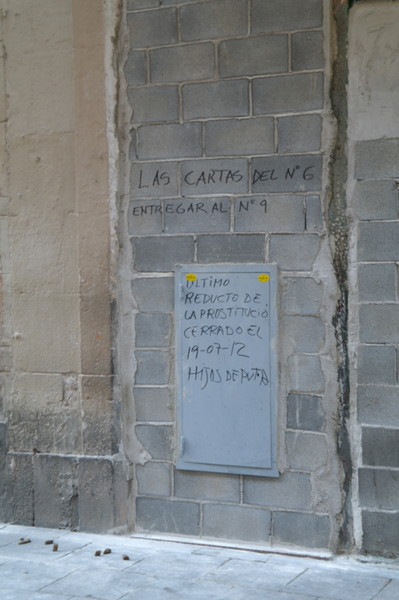 LAS CARTAS DEL Nº 6
ENTREGAR AL Nº 9
ULTIMO
REDUCTO DE
LA PROSTITUCIÓ
CERRADO EL
19-07-12
HIJOS DE PUTA